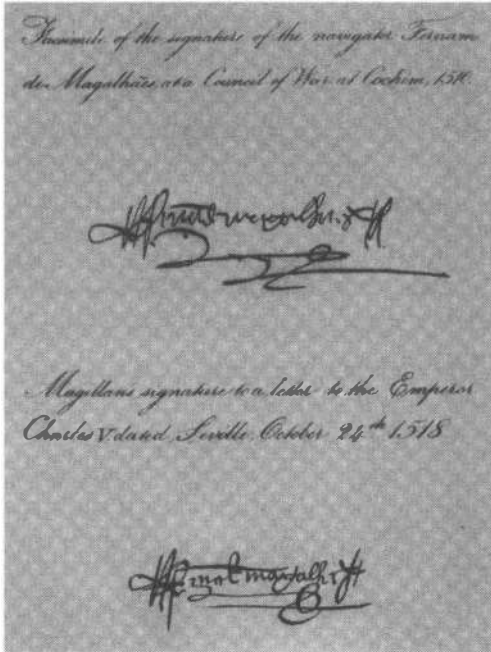 Facsimile of the signature of the navigator Fernam
de Magalhães, at a Council of War at Cochim, 1510.
Magellans signature to a letter to the Emperor
Charles V dated, Seville, October 24th 1518